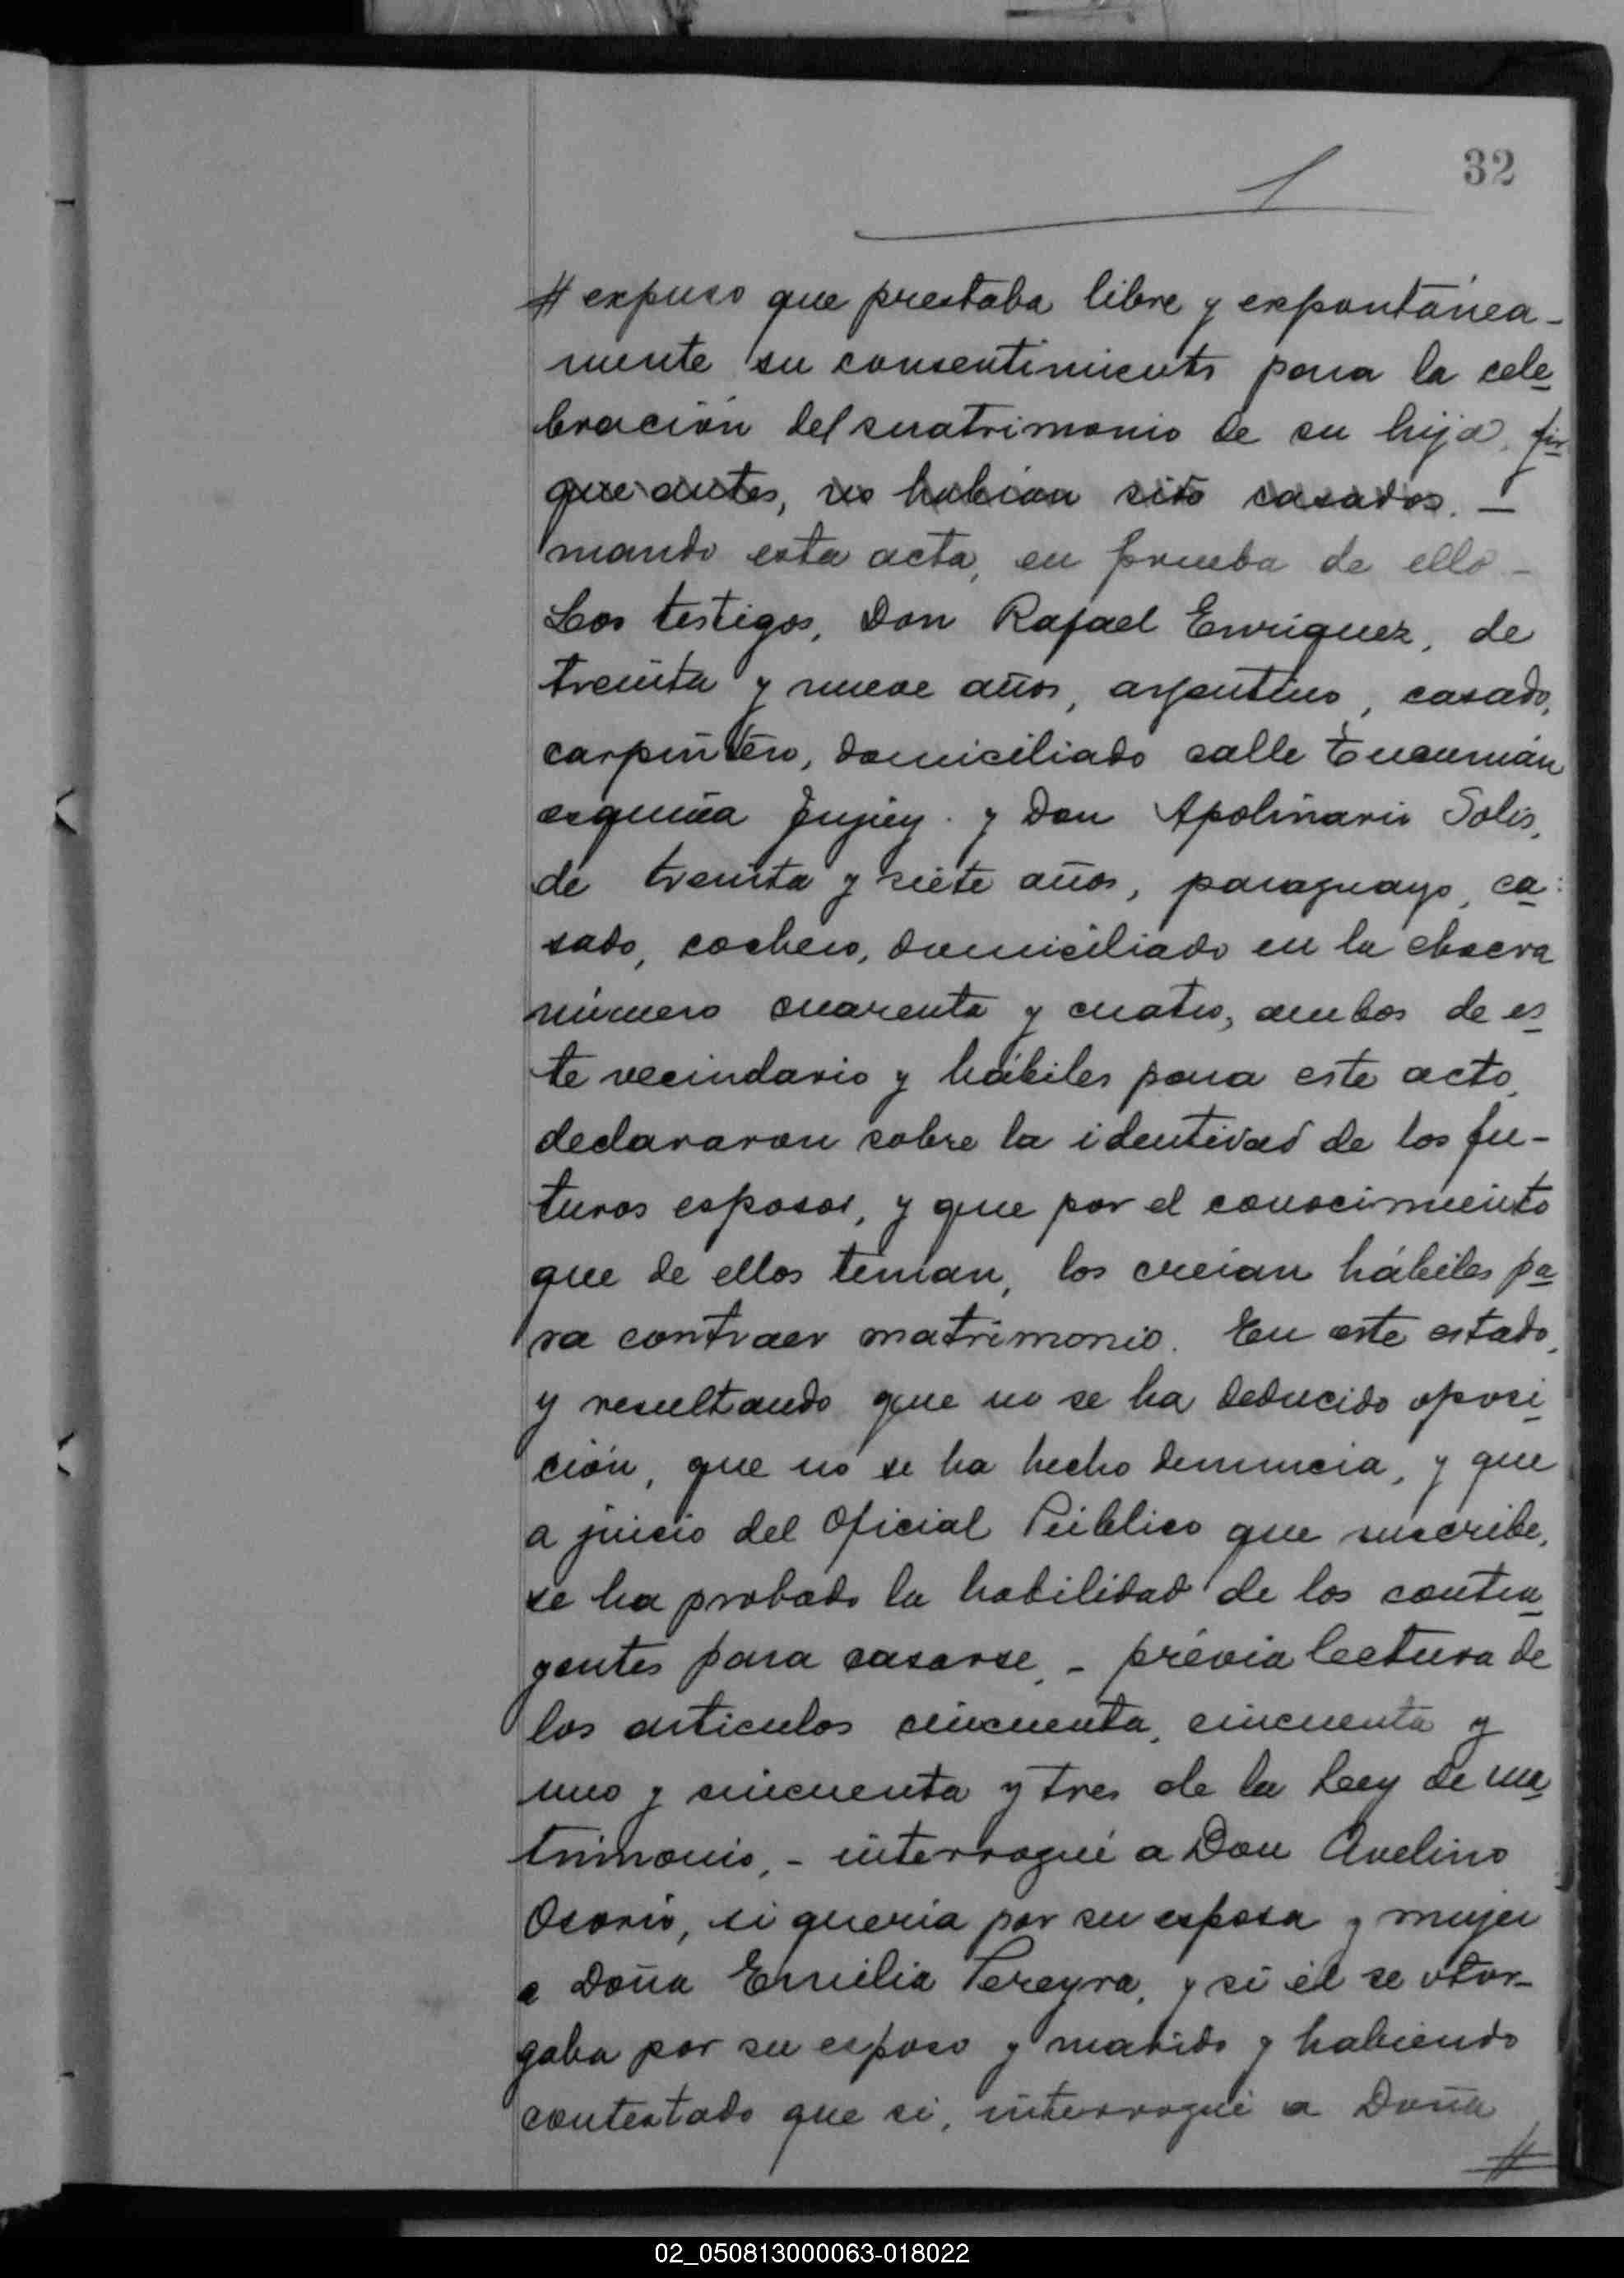 32
# expuso que prestaba libre y expontánea-
mente su consentimiento para la cele
bración del matrimonio de su hija, fir
que antes, no habían sido casados. —
mando esta acta, en prueba de ello —
Los testigos, Don Rafael Enriquez, de
treinta y nueve años, argentino, casado,
carpintero, domiciliado calle Tucumán
esquina Jujuy. y Don Apolinario Solis,
de treinta y siete años, paraguayo, ca:
sado, cochero, domiciliado en la chacra
número cuarenta y cuatro, ambos de es
te vecindario y hábiles para este acto,
declararon sobre la identidad de los fu-
turos esposos, y que por el conocimiento
que de ellos tenían, los creían hábiles pa
ra contraer matrimonio. En este estado,
y resultando que no se ha deducido oposi
ción, que no se ha hecho denuncia, y que
a juicio del Oficial Público que suscribe,
se ha probado la habilidad de los contra
yentes para casarse, - prévia lectura de
los articulos cincuenta, cincuenta y
uno y cincuenta y tres de la Ley de ma
trimonio, - interrogué a Don Avelino
Osorio, si quería por su esposa y mujer
a Doña Emilia Pereyra, y si él se otor-
gaba por su esposo y marido y habiendo
contestado que si, interrogué a Doña
#
02_050813000063-018022